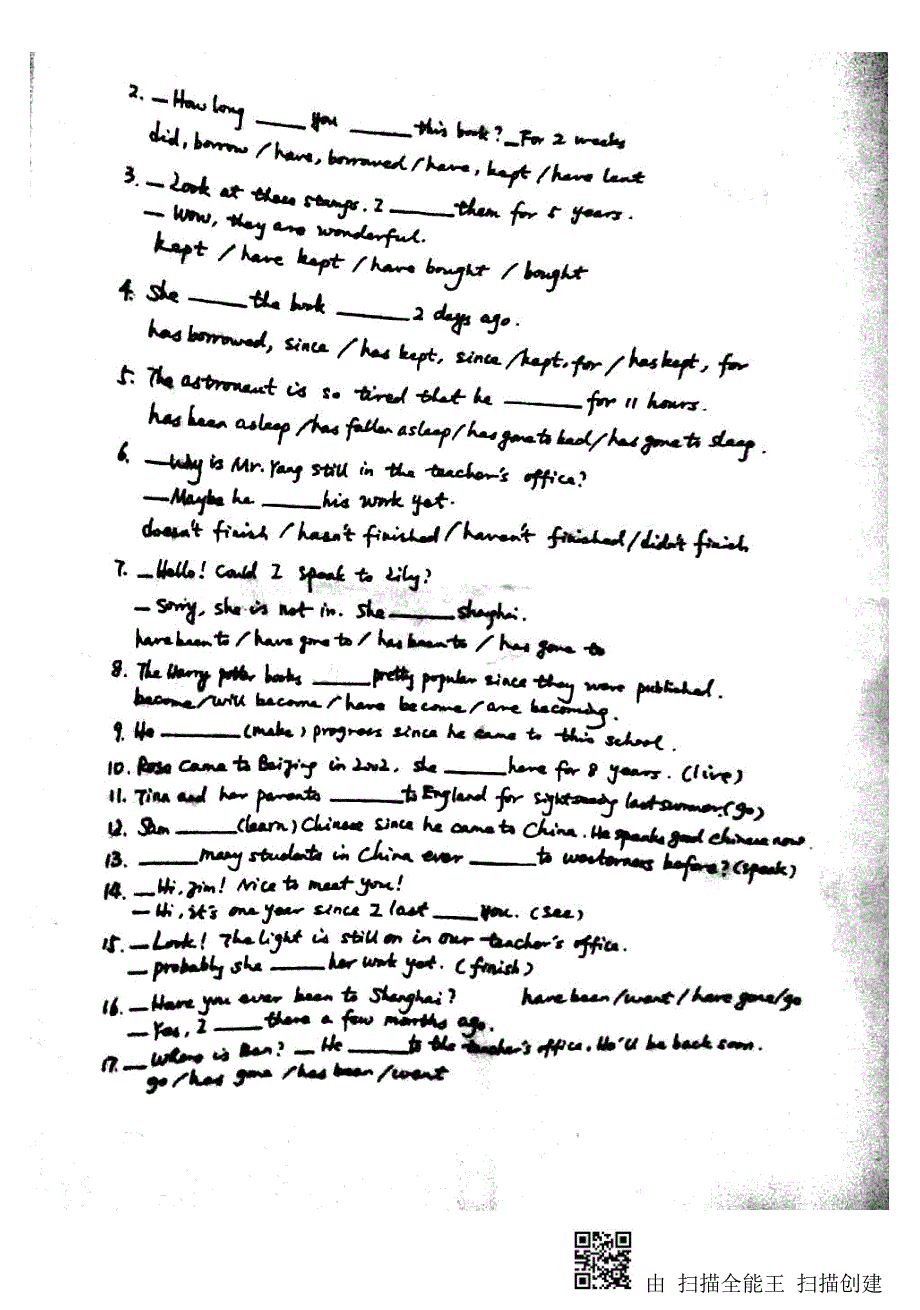 2. — How long ____ you ____ this book? — For 2 weeks
did, borrow / have, borrowed / have, kept / have lent
3. — Look at these stamps. I ____ them for 5 years.
— Wow, they are wonderful.
kept / have kept / have bought / bought
4. She ____ the book ____ 2 days ago.
has borrowed, since / has kept, since / kept, for / has kept, for
5. The astronaut is so tired that he ____ for 11 hours.
has been asleep / has fallen asleep / has gone to bed / has gone to sleep.
6. — Why is Mr. Yang still in the teacher's office?
— Maybe he ____ his work yet.
doesn't finish / hasn't finished / haven't finished / didn't finish
7. — Hello! Could I speak to Lily?
— Sorry, she is not in. She ____ shaghai.
have been to / have gone to / has been to / has gone to
8. The Harry potter books ____ pretty popular since they were published.
become / will become / have become / are becoming.
9. He ____ (make) progress since he came to this school.
10. Rose came to Beijing in 2002. she ____ here for 8 years. (live)
11. Tina and her parents ____ to England for sightseeing last summer. (go)
12. Sam ____ (learn) Chinese since he came to China. He speaks good chinese now.
13. ____ many students in China ever ____ to westerners before? (speak)
14. — Hi, Jim! Nice to meet you!
— Hi, it's one year since I last ____ you. (see)
15. — Look! The light is still on in our teacher's office.
— probably she ____ her work yet. (finish)
16. — Have you ever been to Shanghai? have been / went / have gone / go
— Yes, I ____ there a few months ago.
17. — Where is Ben? — He ____ to the teacher's office. He'll be back soon.
go / has gone / has been / went
由 扫描全能王 扫描创建